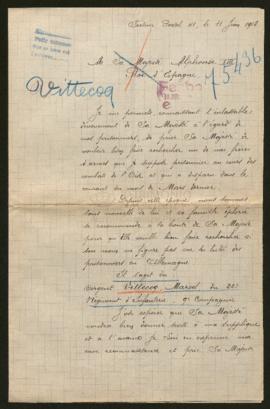 Secteur Postal 41, le 11 Juin 1918
A Sa Majesté Alphonse XIII
Roi d'Espagne
Vittecoq
75436
Je me permets, connaissant l'inlassable
dévouement de Sa Majesté à l'égard de
nos prisonniers, de prier Sa Majesté de
vouloir bien faire rechercher un de mes frères
d'armes que je suppose prisonnier au cours des
combats de l'Oise et qui a disparu dans le
courant du mois de Mars dernier.
Depuis cette époque nous sommes
sans nouvelle de lui et sa famille éplorée
se recommande à la bonté de Sa Majesté
pour qu'Elle veuille bien faire rechercher si
son nom ne figure pas sur les listes des
prisonniers en Allemagne.
Il s'agit du
Sergent Vittecoq, Marcel du
Régiment d'Infanterie. 9e Compagnie
J'ose espérer que Sa Majesté
voudra bien donner suite à ma supplique
et à l'avance je Lui en exprime ma
reconnaissance et prie Sa Majesté